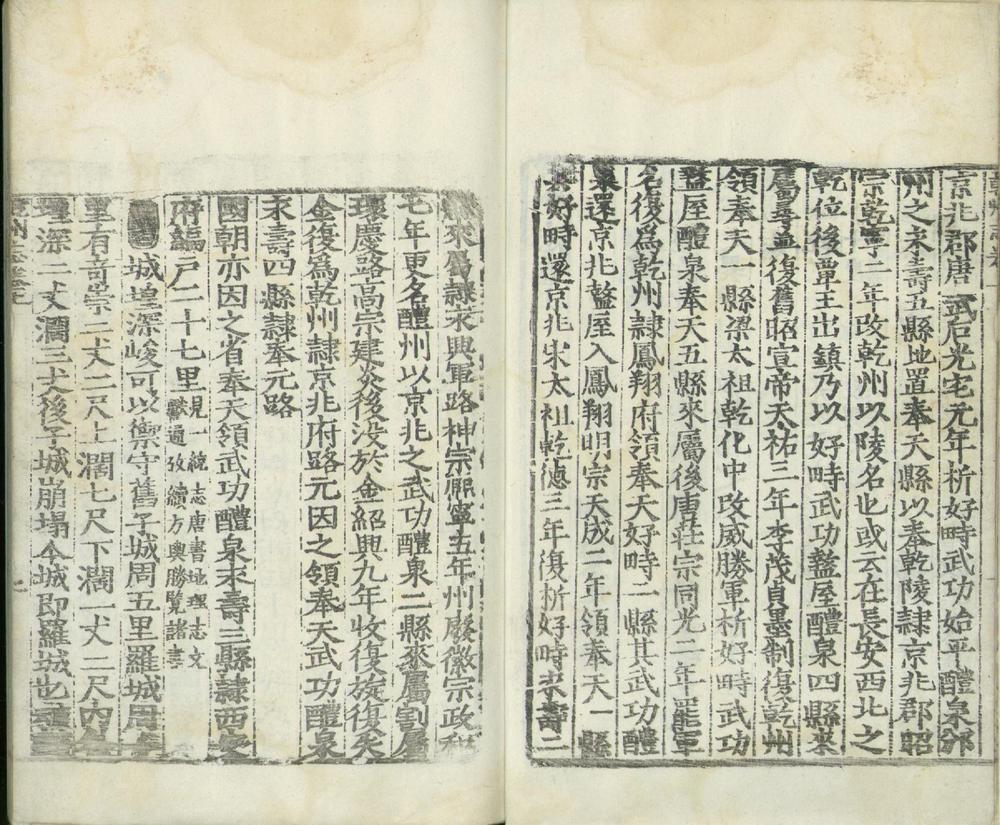 京兆郡唐武后光宅元年析好畤武功始平醴泉邠
州之永壽五縣地置奉天縣以奉乾陵隸京兆郡昭
宗乾寧二年改乾州以陵名也或云在長安西北之
乾位後覃王出鎮乃以好畤武功盩厔醴泉四縣來
屬尋並復舊昭宣帝天祐三年李茂貞墨制復乾州
領奉天一縣梁太祖乾化中改威勝軍析好畤武功
盩厔醴泉奉天五縣來屬後唐莊宗同光二年罷軍
名復爲乾州隸鳳翔府領奉天好畤二縣其武功醴
泉還京兆盩厔入鳳翔明宗天成二年領奉天一縣
其好畤還京兆宋太祖乾德三年復析好畤永壽二
縣來屬隸永興軍路神宗熈寧五年州廢徽宗政和
七年更名醴州以京兆之武功醴泉二縣來屬割屬
環慶路高宗建炎後没於金紹興九年收復旋復失
金復爲乾州隸京兆府路元因之領奉天武功醴泉
永壽四縣隸奉元路
國朝亦因之省奉天領武功醴泉永壽三縣隸西安
府編户二十七里見一統志唐書地理志文
獻通攷續方輿勝覽諸書
城隍深峻可以禦守舊子城周五里羅城周
里有奇崇二丈二尺上濶七尺下濶一丈二尺内
隍深二丈濶三丈後子城崩塌今城即羅城也